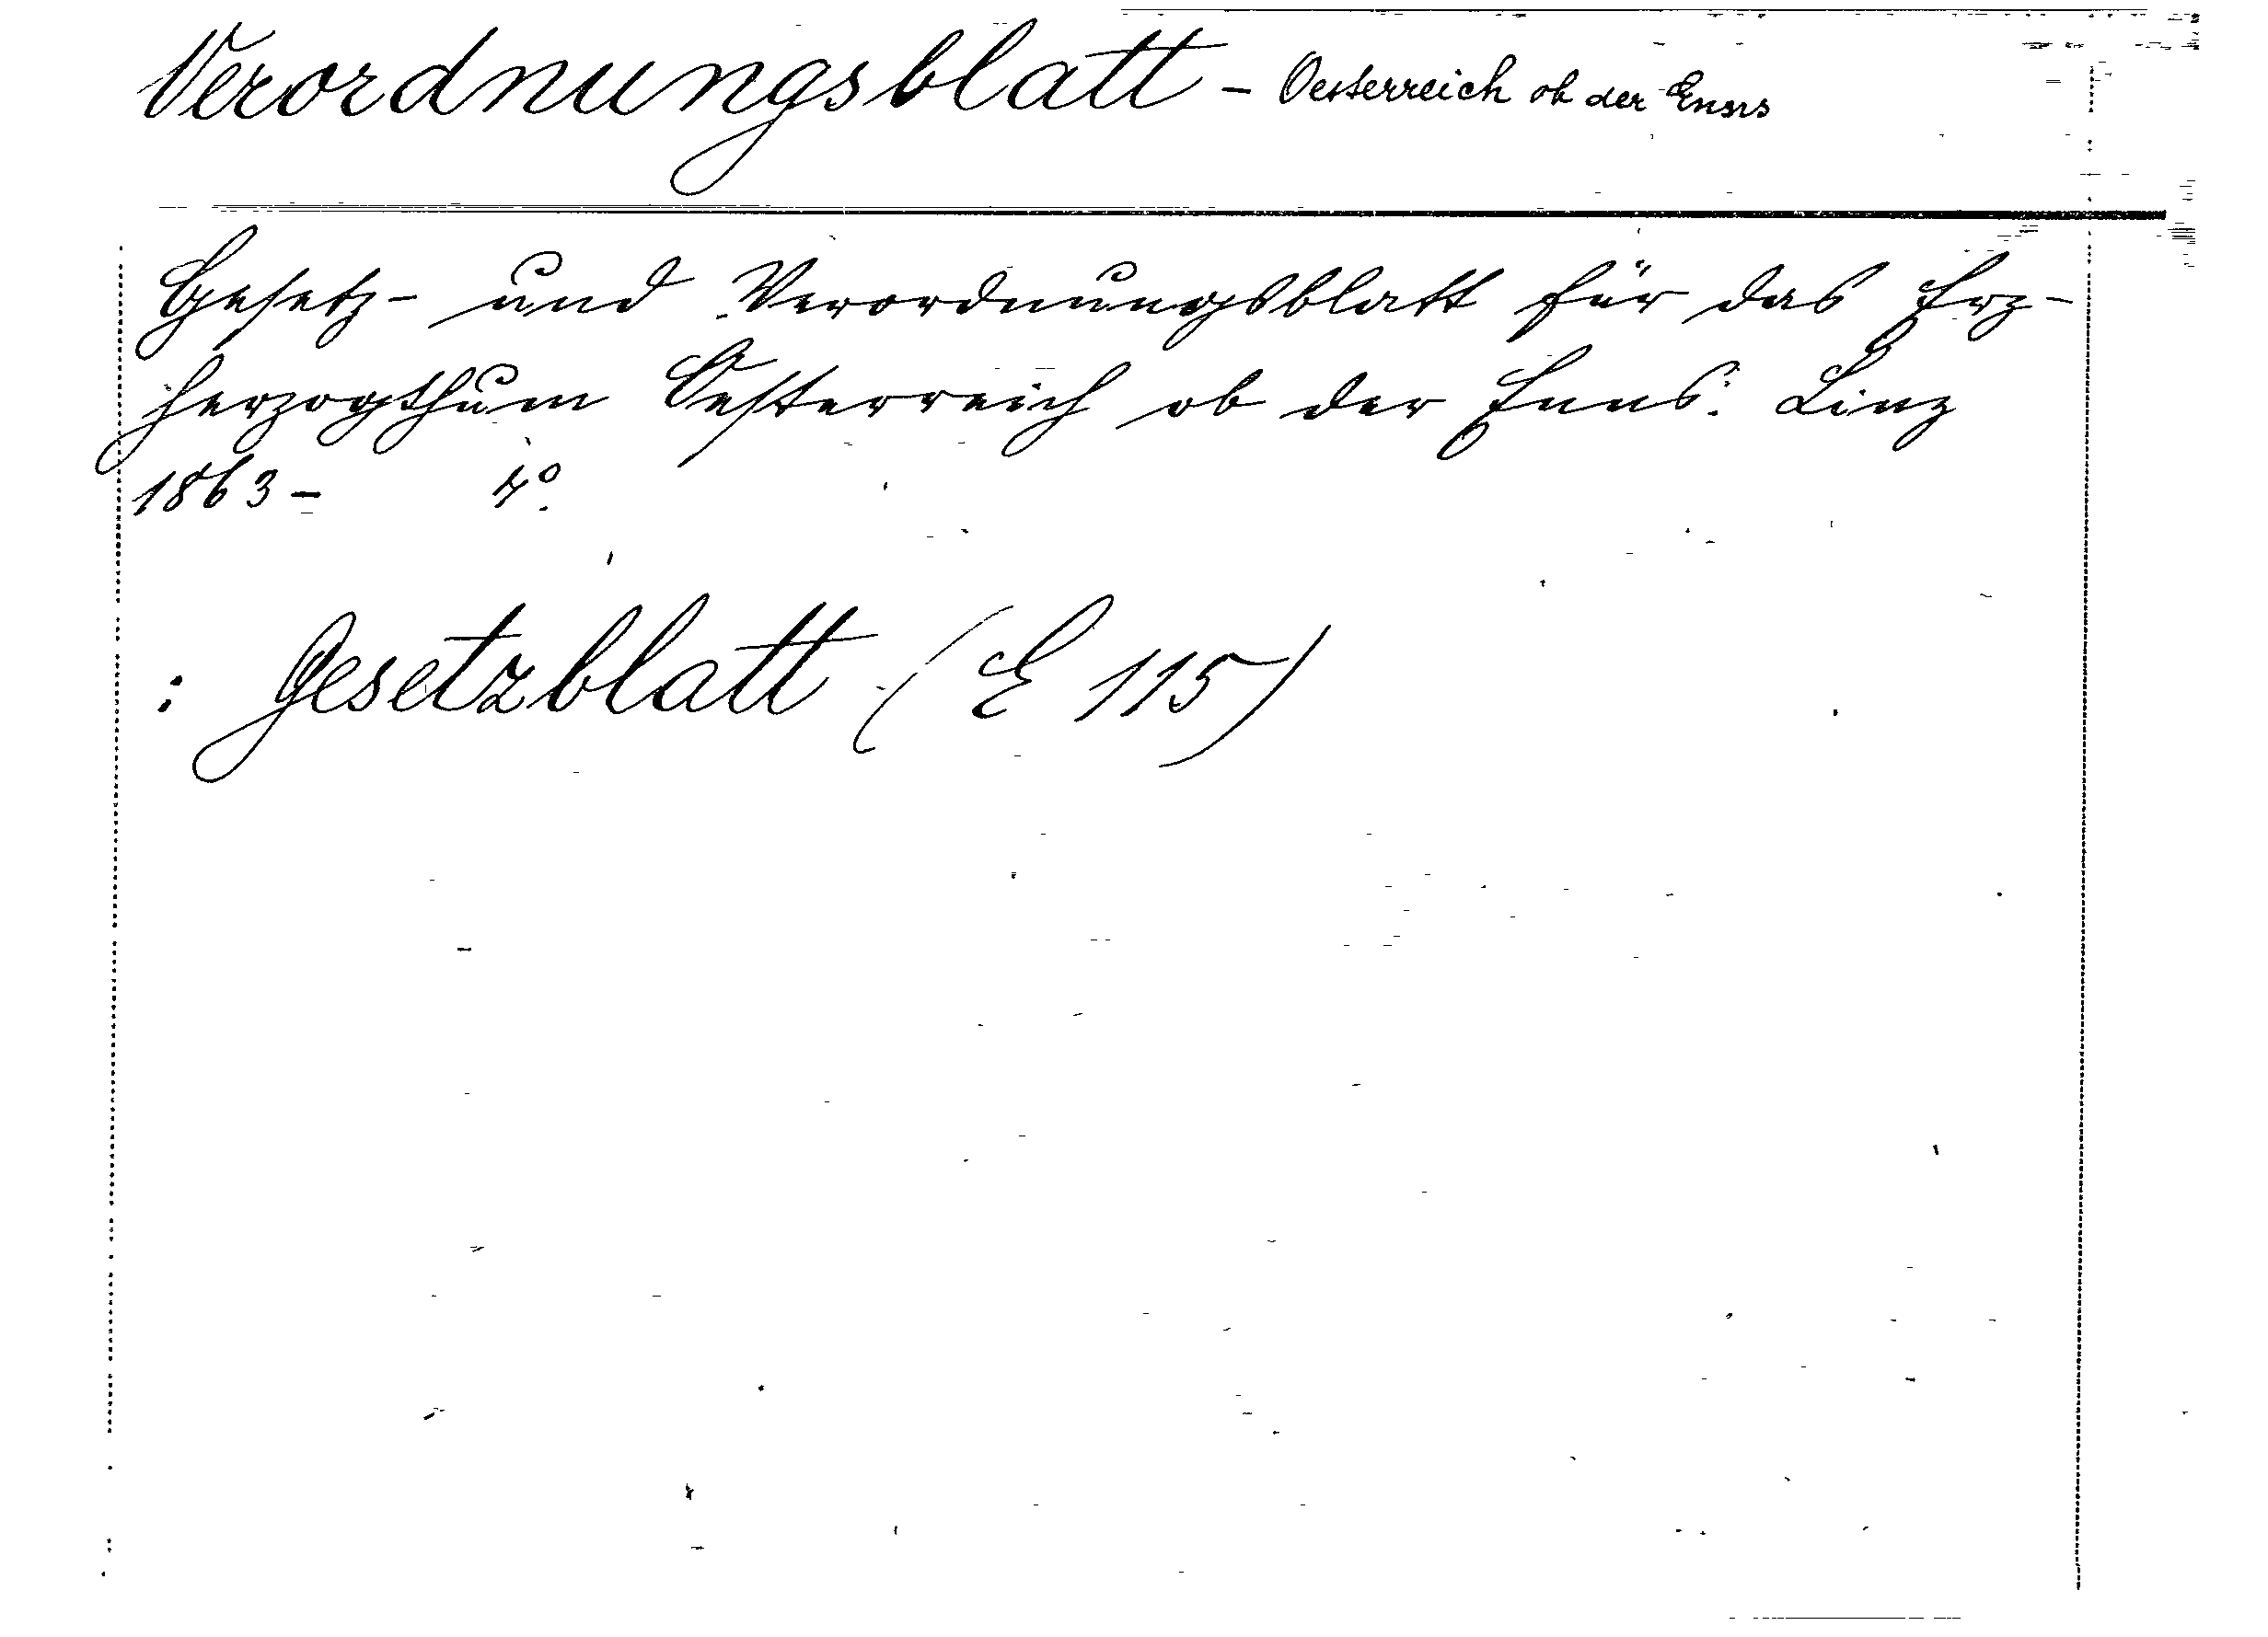 Verordnungsblatt - Oesterreich ob der Enns
Gesetz- und Verordnungsblatt für das Erz-
herzogthum Oesterreich ob der Enns. Linz
1863 - 4°.
: Gesetzblatt (E 115)